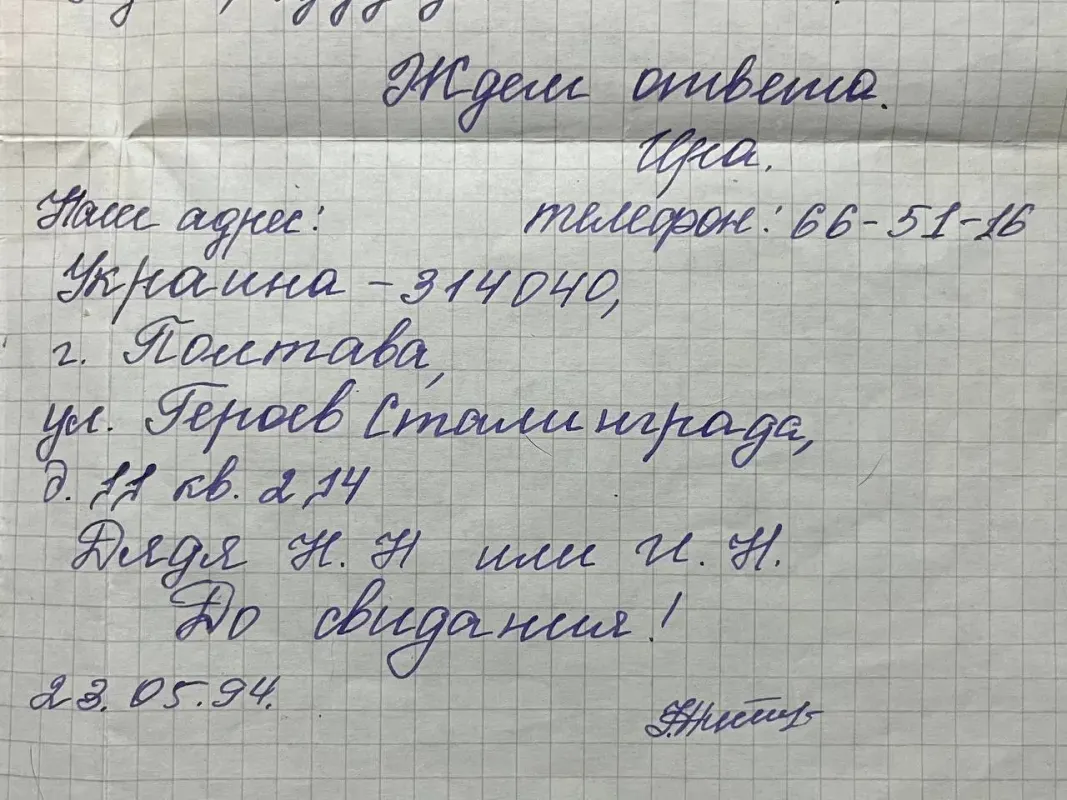 Ждем ответа.
Ира.
Наш адрес:
телефон: 66-51-16
Украина - 314040,
г. Полтава,
ул. Героев Сталинграда,
д. 11 кв. 214
Дядя Н. Н или И. Н.
До свидания!
23.05.94.